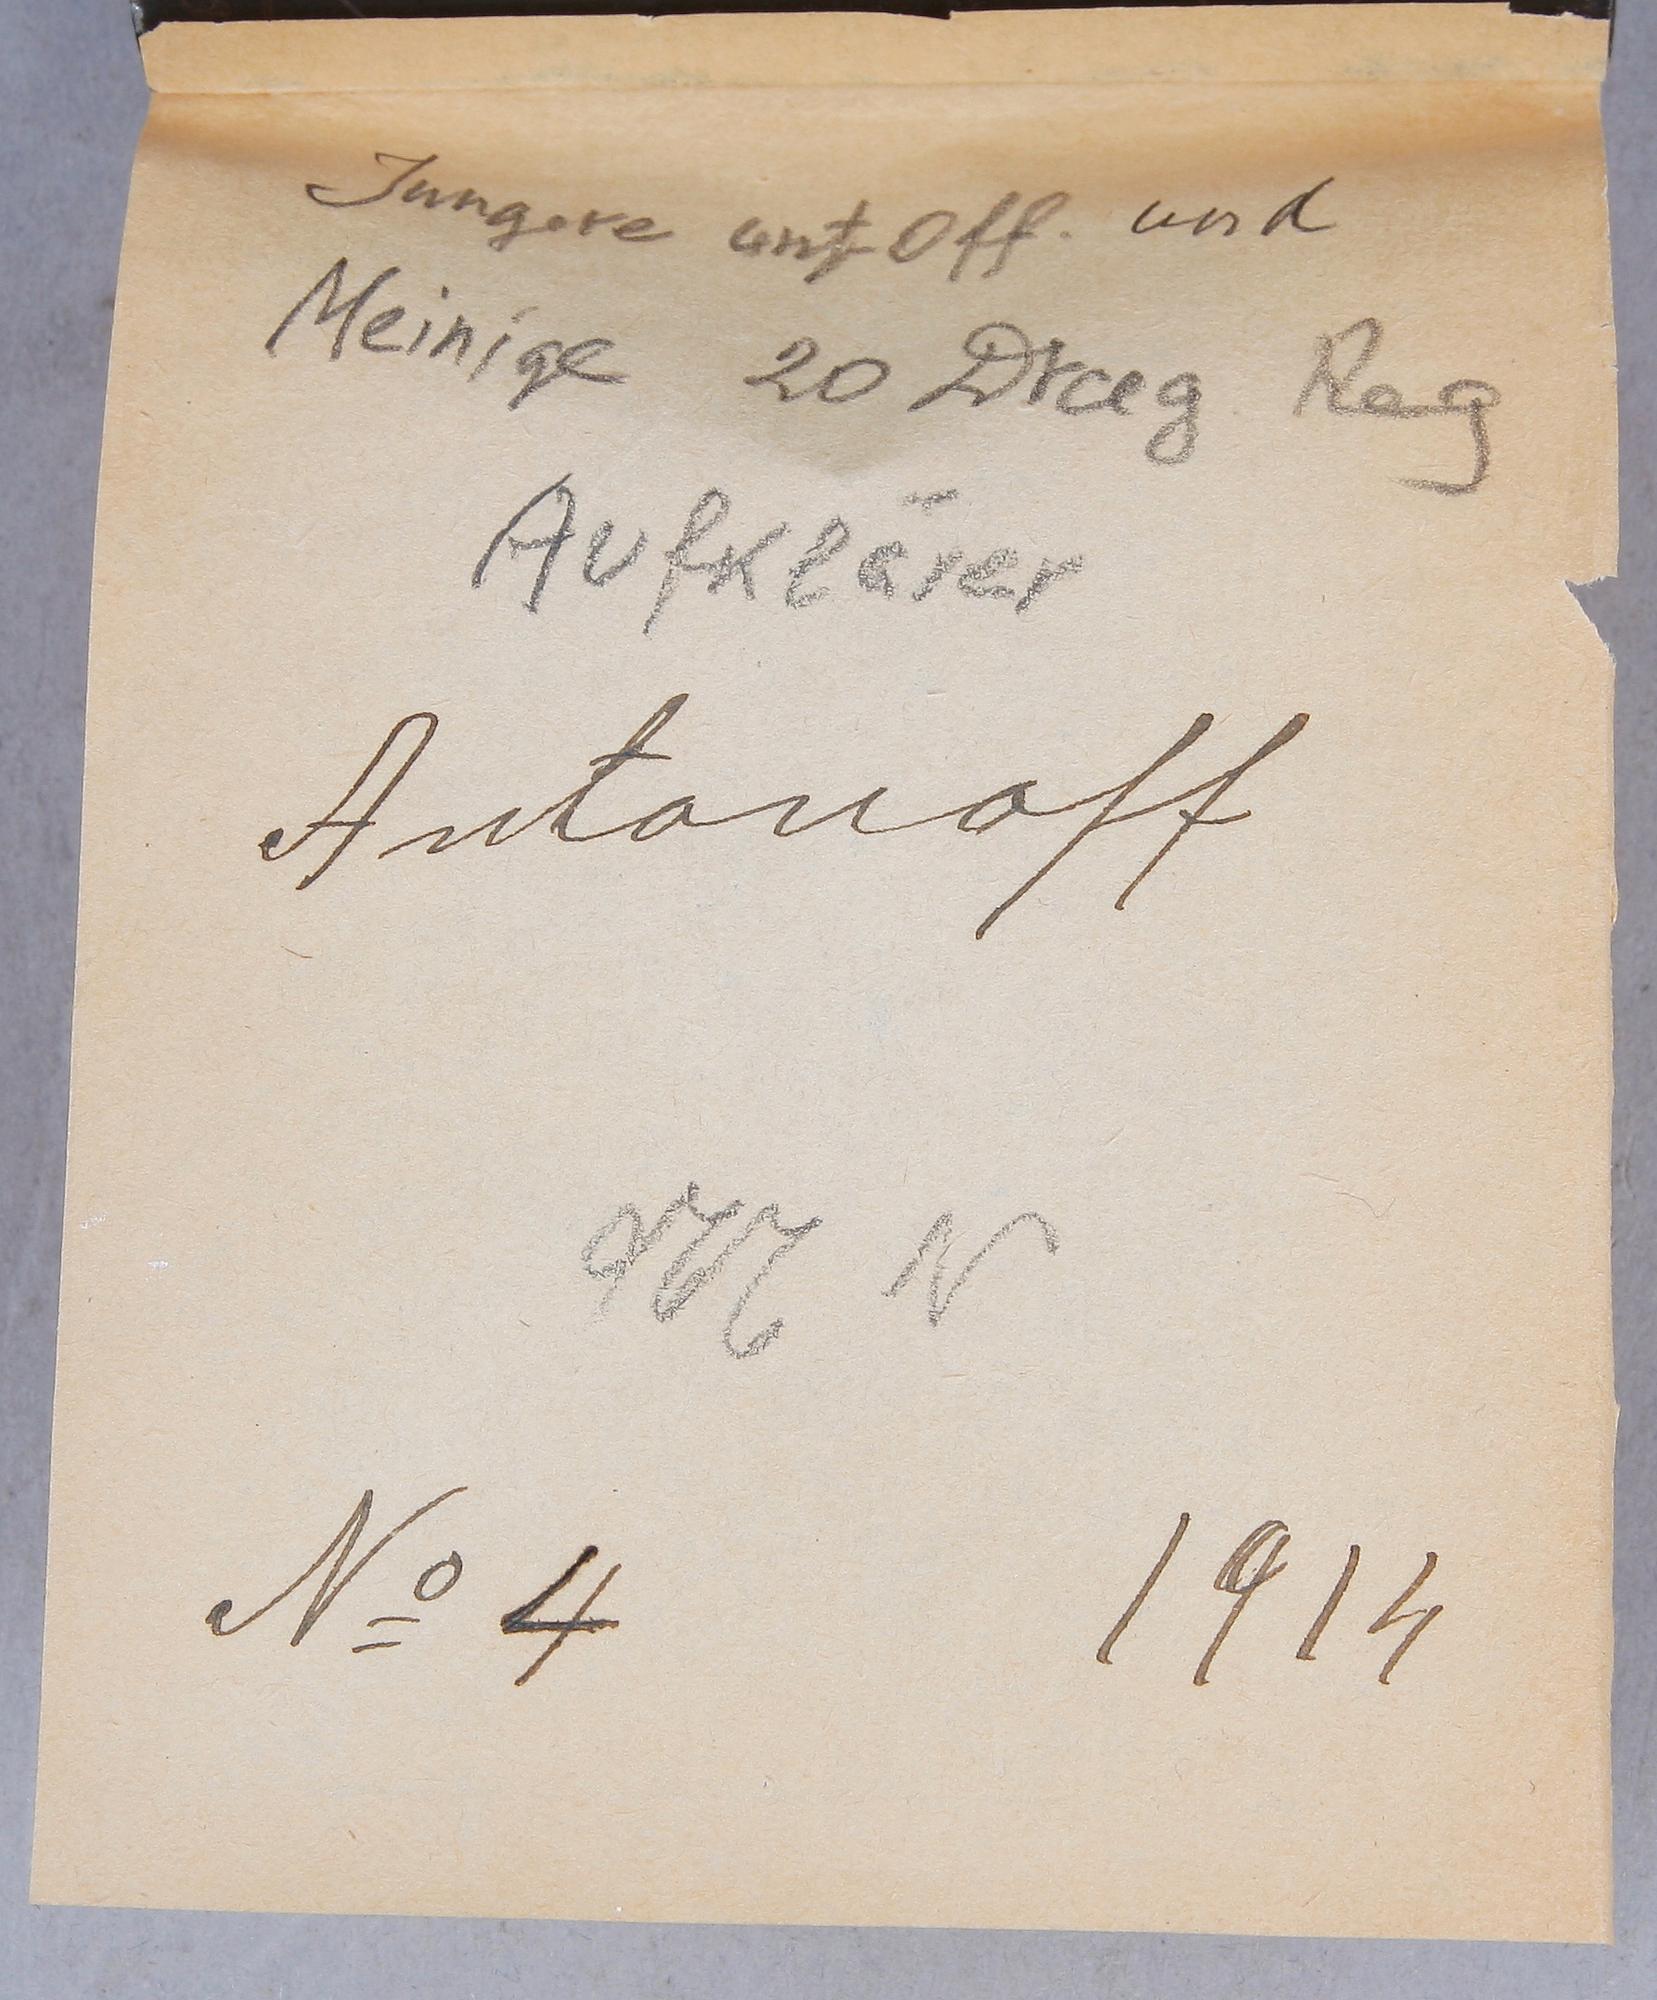 Jungere unt Off. und
Meinige 20 Drag Reg
Aufklärer
Antonoff
N
Nº 4 1914